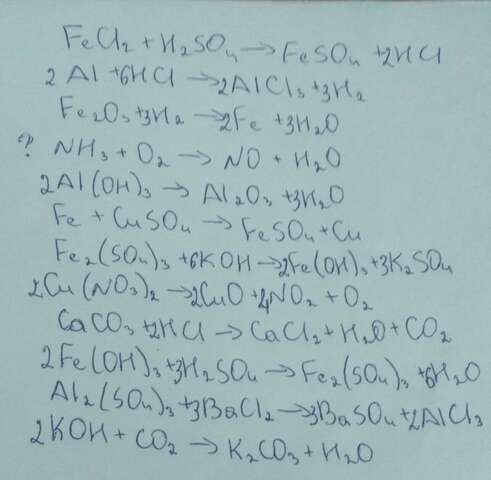 FeCl₂ + H₂SO₄ → FeSO₄ + 2HCl
2Al + 6HCl → 2AlCl₃ + 3H₂
Fe₂O₃ + 3H₂ → 2Fe + 3H₂O
? NH₃ + O₂ → NO + H₂O
2Al(OH)₃ → Al₂O₃ + 3H₂O
Fe + CuSO₄ → FeSO₄ + Cu
Fe₂(SO₄)₃ + 6KOH → 2Fe(OH)₃ + 3K₂SO₄
2Cu(NO₃)₂ → 2CuO + 4NO₂ + O₂
CaCO₃ + 2HCl → CaCl₂ + H₂O + CO₂
2Fe(OH)₃ + 3H₂SO₄ → Fe₂(SO₄)₃ + 6H₂O
Al₂(SO₄)₃ + 3BaCl₂ → 3BaSO₄ + 2AlCl₃
2KOH + CO₂ → K₂CO₃ + H₂O